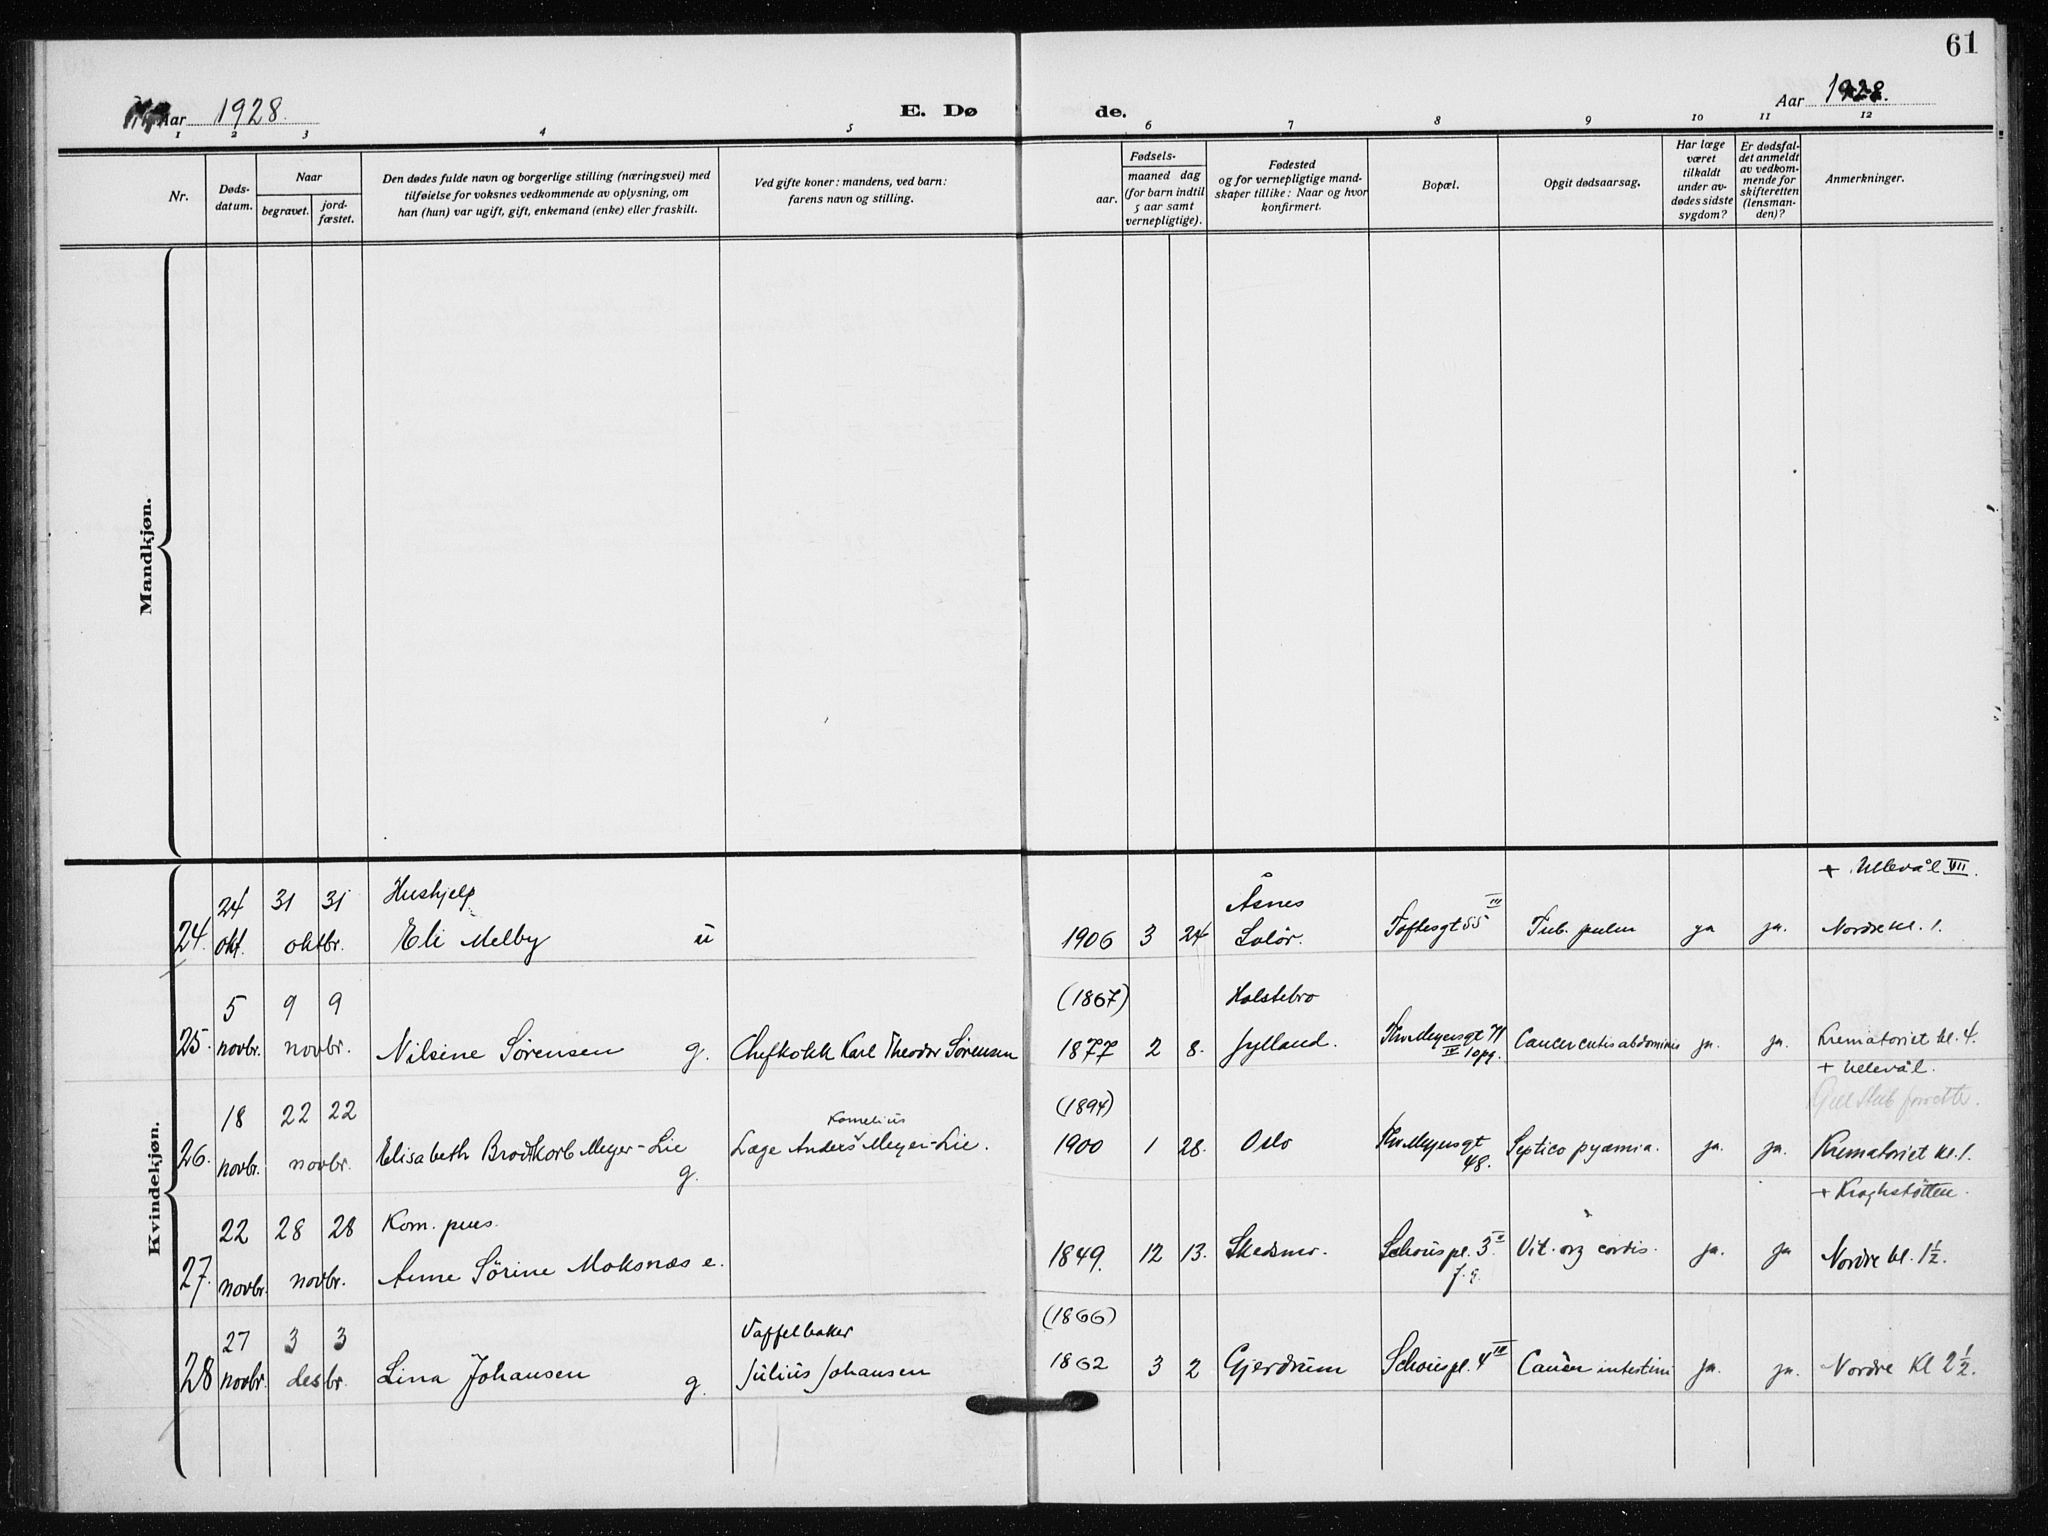 61
Aar 1928.
E. Døde.
Aar 1928.
1 2 3 4 5 6 7 8 9 10 11 12
Nr.
Døds-
datum.
Naar
begravet.
jord-
fæstet.
Den dødes fulde navn og borgerlige stilling (næringsvei) med
tilføielse for voksnes vedkommende av oplysning, om
han (hun) var ugift, gift, enkemand (enke) eller fraskilt.
Ved gifte koner: mandens, ved barn:
farens navn og stilling.
Fødsels-
aar.
maaned dag
(for barn indtil
5 aar samt
vernepligtige).
Fødested
og for vernepligtige mand-
skaper tillike: Naar og hvor
konfirmert.
Bopæl.
Opgit dødsaarsag.
Har læge
været
tilkaldt
under av-
dødes sidste
sygdom?
Er dødsfal-
det anmeldt
av vedkom-
mende for
skifteretten
(lensman-
den)?
Anmerkninger.
Mandkjøn.
Kvindekjøn.
+ Ullevål VII.
24 31 31 Hushjelp Åsnes
24. okt. oktbr. Eli Melby u 1906 3 24 Solör. Toftesgt 55 III Tub. pulm ja ja. Nordre kl. 1.
5 9 9 (1867) Holstebro
25. novbr. novbr. Nilsine Sørensen g. Chefkokk Karl Theodor Sørensen 1877 2 8. Jylland. Thv. Meyersgt 71 IV Cancer cutis abdominis ja. ja. Krematoriet kl. 4.
+ Ullevål.
18 22 22 Kornelius (1894)
26. novbr. novbr. Elisabeth Brodtkorb Meyer-Lie g. Læge Anders Meyer-Lie. 1900 1 28. Oslo Thv. Meyersgt 48. Septico pyæmia. ja. ja. Krematoriet kl. 1.
+ Kroghstøtten.
22 28 28 Kom. pens.
27. novbr. novbr. Anne Sørine Moksnæs e. 1849. 12 13. Skedsmo. Schouspl. 3 Vit. org cordis. ja. ja Nordre kl. 1½.
27 3 3 Vaffelbaker (1866)
28 novbr. desbr. Lina Johansen g. Julius Johansen 1862 3 2 Gjerdrum Schouspl. 4 IV Cancer intestini ja. ja. Nordre Kl 2½.